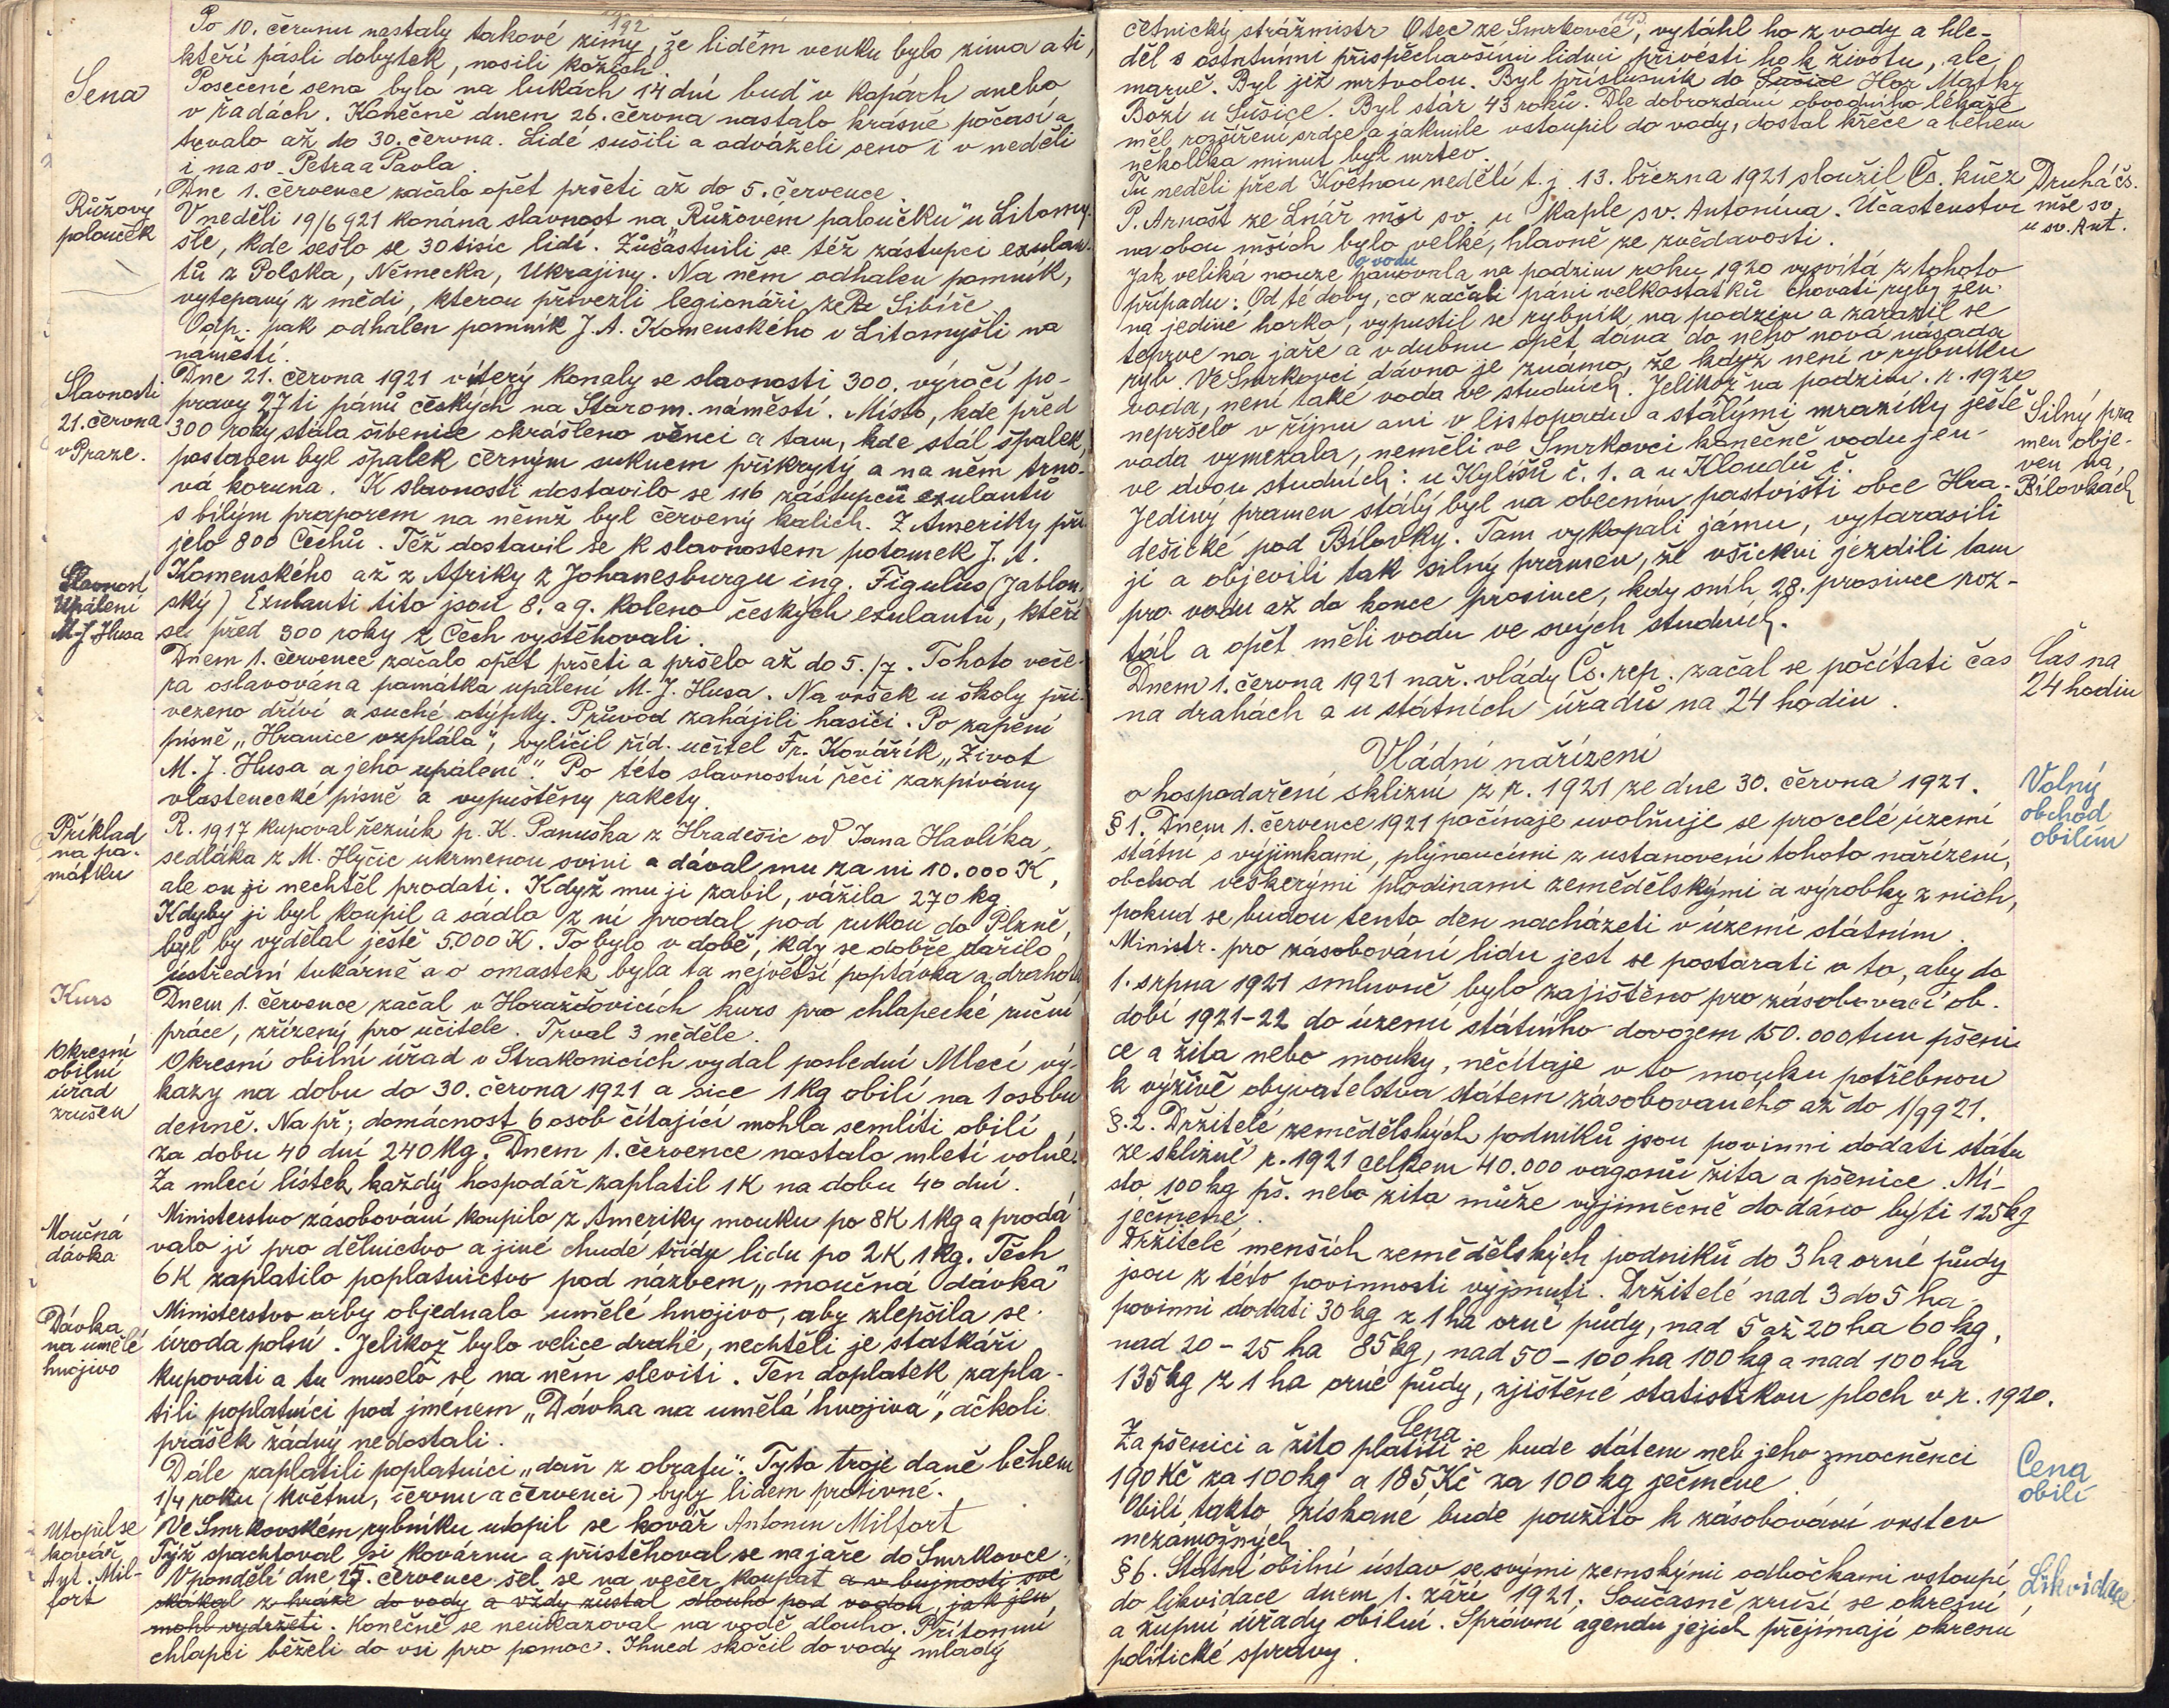 192
Po 10. červnu nastaly takové zimy, že lidem venku bylo zima a ti,
kteří pásli dobytek, nosili kožich.
Sena
Posečené seno bylo na lukách 14 dní buď v kopách anebo
v řadách. Konečně dnem 26. června nastalo krásné počasí a
trvalo až do 30. června. Lidé sušili a odváželi seno i v neděli
i na sv. Petra a Pavla.
Dne 1. července začalo opět pršeti až do 5. července.
Růžový
palouček
V neděli 19/6 921 konána slavnost na „Růžovém paloučku" u Litomy-
šle, kde sešlo se 30 tisíc lidí. Zúčastnili se též zástupci exulan-
tů z Polska, Německa, Ukrajiny. Na něm odhalen pomník,
vytepaný z mědi, kterou přivezli legionáři ze Sibíře
Odp. pak odhalen pomník J. A. Komenského v Litomyšli na
náměstí.
Slavnosti
21. června
v Praze.
Dne 21. června 1921 v úterý konaly se slavnosti 300. výročí po-
pravy 27 ti pánů českých na Starom. náměstí. Místo, kde před
300 roky stála šibenice okrášleno věnci a tam, kde stál špalek,
postaven byl špalek černým suknem přikrytý a na něm trno-
vá koruna. K slavnosti dostavilo se 116 zástupců exulantů
s bílým praporem na němž byl červený kalich. Z Ameriky při-
jelo 800 Čechů. Též dostavil se k slavnostem potomek J. A.
Komenského až z Afriky z Johanesburgu ing. Figulus (Jablon-
ský) Exulanti tito jsou 8. a 9. koleno českých exulantů, kteří
se před 300 roky z Čech vystěhovali.
Slavnost
Upálení
M. J. Husa
Dnem 1. července začalo opět pršeti a pršelo až do 5./7. Tohoto veče-
ra oslavována památka upálení M. J. Husa. Na vršek u školy při-
vezeno dříví a suché otýpky. Průvod zahájili hasiči. Po zapění
písně „Hranice vzplála", vylíčil říd. učitel Fr. Kovářík „Život
M. J. Husa a jeho upálení". Po této slavnostní řeči zazpívány
vlastenecké písně a vypuštěny rakety.
Příklad
na pa-
mátku
R. 1917 kupoval řezník p. K. Panuška z Hradešic od Jana Havlíka,
sedláka z M. Hyčic ukrmenou svini a dával mu za ni 10.000 K,
ale on ji nechtěl prodati. Když mu ji zabil, vážila 270 kg.
Kdyby ji byl koupil a sádlo z ní prodal pod rukou do Plzně,
byl by vydělal ještě 5.000 K. To bylo v době, kdy se dobře dařilo
ústřední tukárně a o omastek byla ta největší poptávka a drahota
Kurs
Dnem 1. července začal v Horažďovicích kurs pro chlapecké ruční
práce, zřízený pro učitele. Trval 3 neděle.
Okresní
obilní
úřad
zrušen
Okresní obilní úřad v Strakonicích vydal poslední Mlecí vý-
kazy na dobu do 30. června 1921 a sice 1 kg obilí na 1 osobu
denně. Na př; domácnost 6 osob čítající mohla semlíti obilí
za dobu 40 dní 240 kg. Dnem 1. července nastalo mletí volné.
Za mlecí lístek každý hospodář zaplatil 1 K na dobu 40 dní.
Moučná
dávka
Ministerstvo zásobování koupilo z Ameriky mouku po 8K 1 kg a prodá-
valo ji pro dělnictvo a jiné chudé třídy lidu po 2K 1kg. Těch
6K zaplatilo poplatnictvo pod názvem „moučná dávka"
Dávka
na umělé
hnojivo
Ministerstvo orby objednalo umělé hnojivo, aby zlepšila se
úroda polní. Jelikož bylo velice drahé, nechtěli je statkáři
kupovati a tu muselo se na něm sleviti. Ten doplatek zapla-
tili poplatníci pod jménem „Dávka na umělá hnojiva", ačkoli
prášek žádný nedostali.
Dále zaplatili poplatníci „daň z obratu". Tyto troje daně během
1/4 roku (květnu, červnu a červenci) byly lidem protivné.
Utopil se
kovář
Ant. Mil-
fort
Ve Smrkovském rybníku utopil se kovář Antonín Milfort
Týž spachtoval si kovárnu a přistěhoval se na jaře do Smrkovce.
V pondělí dne 17. července šel se na večer koupat a v bujnosti své
skákal z hráze do vody a vždy zůstal dlouho pod vodou, jak jen
mohl vydržeti. Konečně se neukazoval na vodě dlouho. Přítomní
chlapci běželi do vsi pro pomoc. Ihned skočil do vody mladý
193
četnický strážmistr Otec ze Smrkovce, vytáhl ho z vody a hle-
děl s ostatními přispěchavšími lidmi přivésti ho k životu, ale
marně. Byl již mrtvolou. Byl příslušník do Sušice Hor Matky
Boží u Sušice. Byl stár 43 roků. Dle dobrozdání obvodního lékaře
měl rozšíření srdce a jakmile vstoupil do vody, dostal křeče a během
několika minut byl mrtev.
Druhá čs.
mše sv.
u sv. Ant.
Tu neděli před Květnou nedělí t. j. 13. března 1921 sloužil Čs. kněz
P. Arnošt ze Lnář mši sv. u kaple sv. Antonína. Účastenství
na obou mších bylo velké, hlavně ze zvědavosti.
o vodu
Jak veliká nouze panovala na podzim roku 1920 vysvítá z tohoto
případu: Od té doby, co začali páni velkostatků chovati ryby jen
na jediné horko, vypustil se rybník na podzim a zarazil se
teprve na jaře a v dubnu opět dává do něho nová násada
ryb. Ve Smrkovci dávno je známo, že když není v rybníku
voda, není také voda ve studních. Jelikož na podzim r. 1920
nepršelo v říjnu ani v listopadu a stálými mrazíky ještě
voda vymrzala, neměli ve Smrkovci konečně vodu jen
ve dvou studních: u Kylišů č. 1. a u Kloudů č.
Silný pra
men obje-
ven na
Bílovkách
Jediný pramen stálý byl na obecním pastvišti obce Hra-
dešické pod Bílovky. Tam vykopali jámu, vytarasili
ji a objevili tak silný pramen, že všickni jezdili tam
pro vodu až do konce prosince, kdy sníh 28. prosince roz-
tál a opět měli vodu ve svých studních.
Čas na
24 hodin
Dnem 1. června 1921 nař. vlády Čs. rep. začal se počítati čas
na drahách a u státních úřadů na 24 hodin.
Vládní nařízení
o hospodaření sklizní z r. 1921 ze dne 30. června 1921.
Volný
obchod
obilím
§ 1. Dnem 1. července 1921 počínaje uvolňuje se pro celé území
státní s výjimkami, plynoucími z ustanovení tohoto nařízení,
obchod veškerými plodinami zemědělskými a výrobky z nich,
pokud se budou tento den nacházeti v území státním.
Ministr. pro zásobování lidu jest se postarati o to, aby do
1. srpna 1921 smluvně bylo zajištěno pro zásobovací ob-
dobí 1921-22 do území státního dovozem 150.000 tun pšeni-
ce a žita nebo mouky, nečítaje v to mouku potřebnou
k výživě obyvatelstva státem zásobovaného až do 1/9 921.
§. 2. Držitelé zemědělských podniků jsou povinni dodati státu
ze sklizně r. 1921 celkem 40.000 vagonů žita a pšenice. Mí-
sto 100 kg pš. nebo žita může výjimečně dodáno býti 125 kg
ječmene.
Držitelé menších zemědělských podniků do 3 ha orné půdy
jsou z této povinnosti vyjmuti. Držitelé nad 3 do 5 ha
povinni dodati 30 kg z 1 ha orné půdy, nad 5 až 20 ha 60 kg,
nad 20 - 25 ha 85 kg, nad 50 - 100 ha 100 kg a nad 100 ha
135 kg z 1 ha orné půdy, zjištěné statistikou ploch v r. 1920.
Cena
Cena
obilí
Za pšenici a žito platiti se bude státem neb jeho zmocněnci
190 Kč za 100 kg a 185 Kč za 100 kg ječmene.
Obilí takto získané bude použito k zásobování vrstev
nezámožných
Likvidace
§ 6. Státní obilní ústav se svými zemskými odbočkami vstoupí
do likvidace dnem 1. září 1921. Současně zruší se okresní
a župní úřady obilní. Správní agendu jejich přejímají okresní
politické správy.